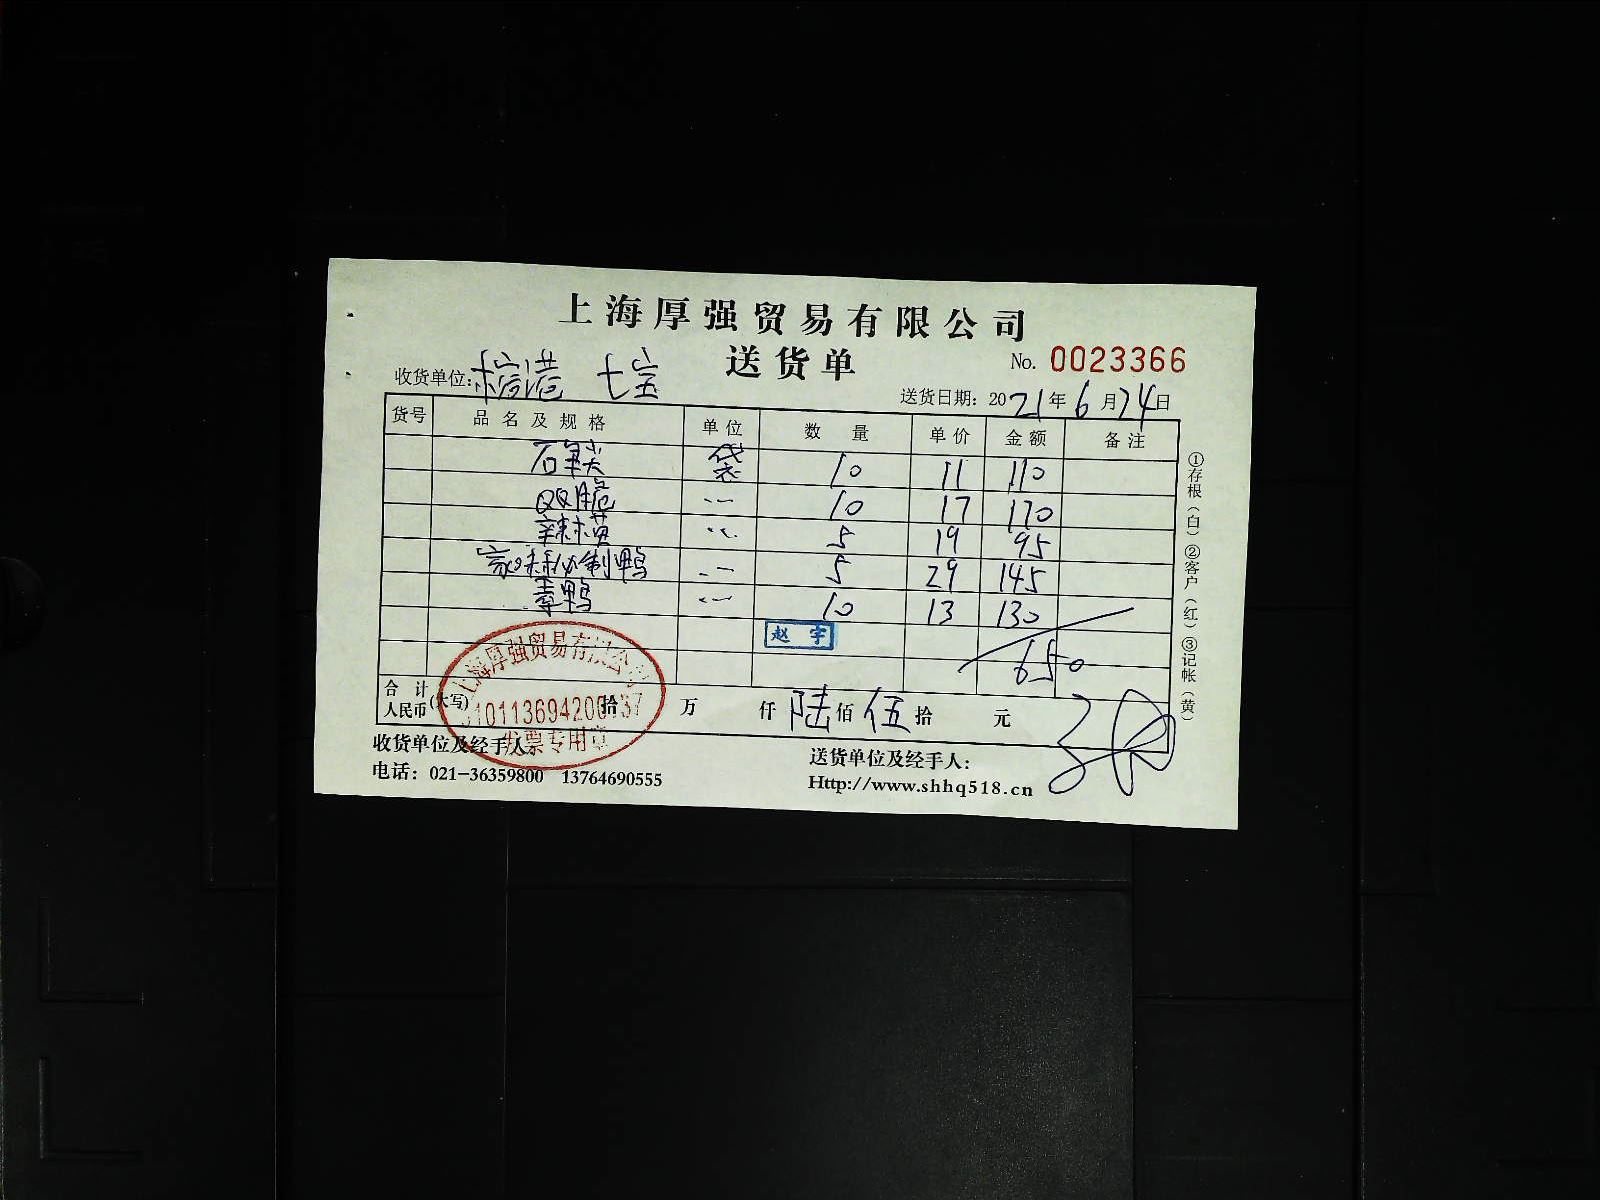 上海厚强贸易有限公司
送货单
No. 0023366
收货单位: 七宝
送货日期: 2021年6月24日
货号 品名及规格 单位 数量 单价 金额 备注
袋 10 11 110
QQ脆 10 17 170
5 19 95
秘制鸭 5 29 145
素鸭 10 13 130
赵宇
650
合计人民币(大写) 拾 万 仟 陆 佰 伍 拾 元
上海厚强贸易有限公司
发票专用章
收货单位及经手人:
送货单位及经手人:
电话: 021-36359800 13764690555
Http://www.shhq518.cn
①存根(白)②客户(红)③记帐(黄)